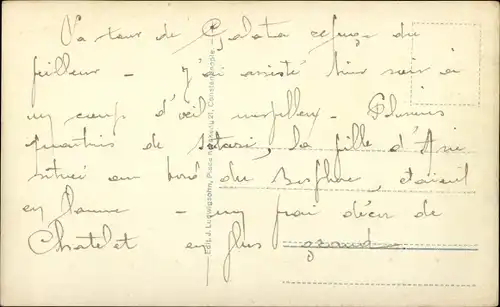 La tour de Galata refuge du
veilleur – J'ai assisté hier soir à
un coup d'oeil merveilleux. Plusieurs
quartiers de Scutari, la ville d'Asie
située au bord du Bosphore, étaient
en flamme – un vrai décor de
Chatelet en plus grand.
Edit. J. Ludwigsohn, Place Constantinople